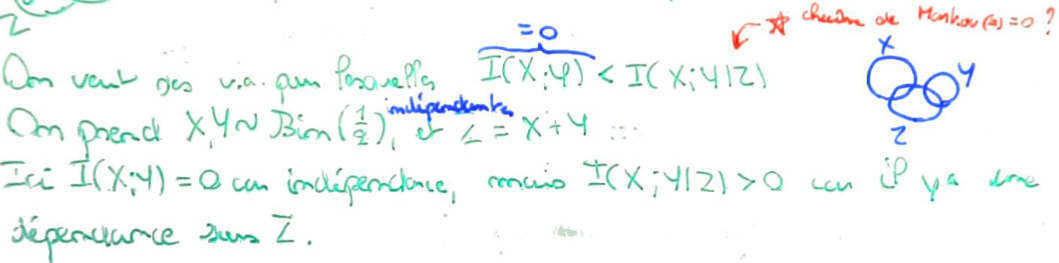 Z
☆ chaîne de Markov (=) = 0 ?
= 0
On veut des v.a. pour lesquelles I(X;Y) < I(X;Y|Z)
X
Y
Z
indépendantes
On prend X,Y ~ Bin(1/2), et Z = X+Y ...
Ici I(X;Y) = 0 car indépendance, mais I(X;Y|Z) > 0 car il y a une
dépendance sous Z.